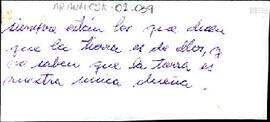 siempre están los que dicen
que la tierra es de ellos, y
no saben que la tierra es
nuestra única dueña.